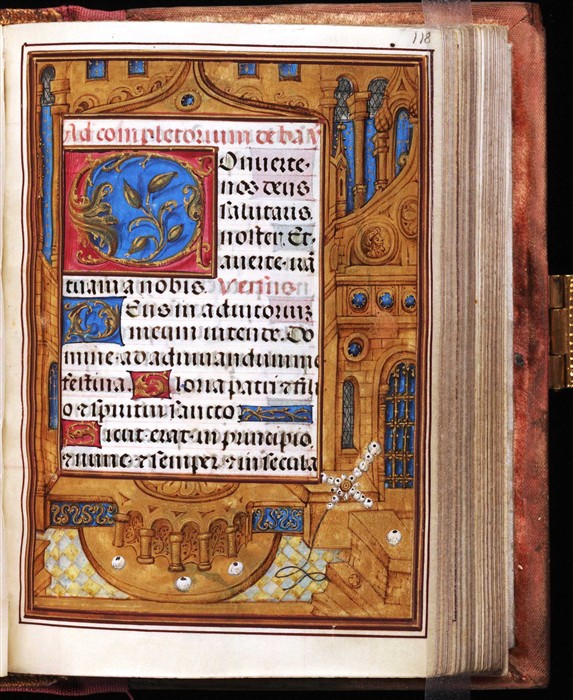 118
Ad completorium de b̃a V̄
Conuerte
nos deus
salutaris
noster. Et
auerte irã
tuam a nobis. Versus
Deus in adiutorium
meum intende. Do
mine ad adiuuandum me
festina. Gloria patri ⁊ fili
o ⁊ spiritui sancto
Sicut erat in principio
⁊ nunc ⁊ semper ⁊ in secula